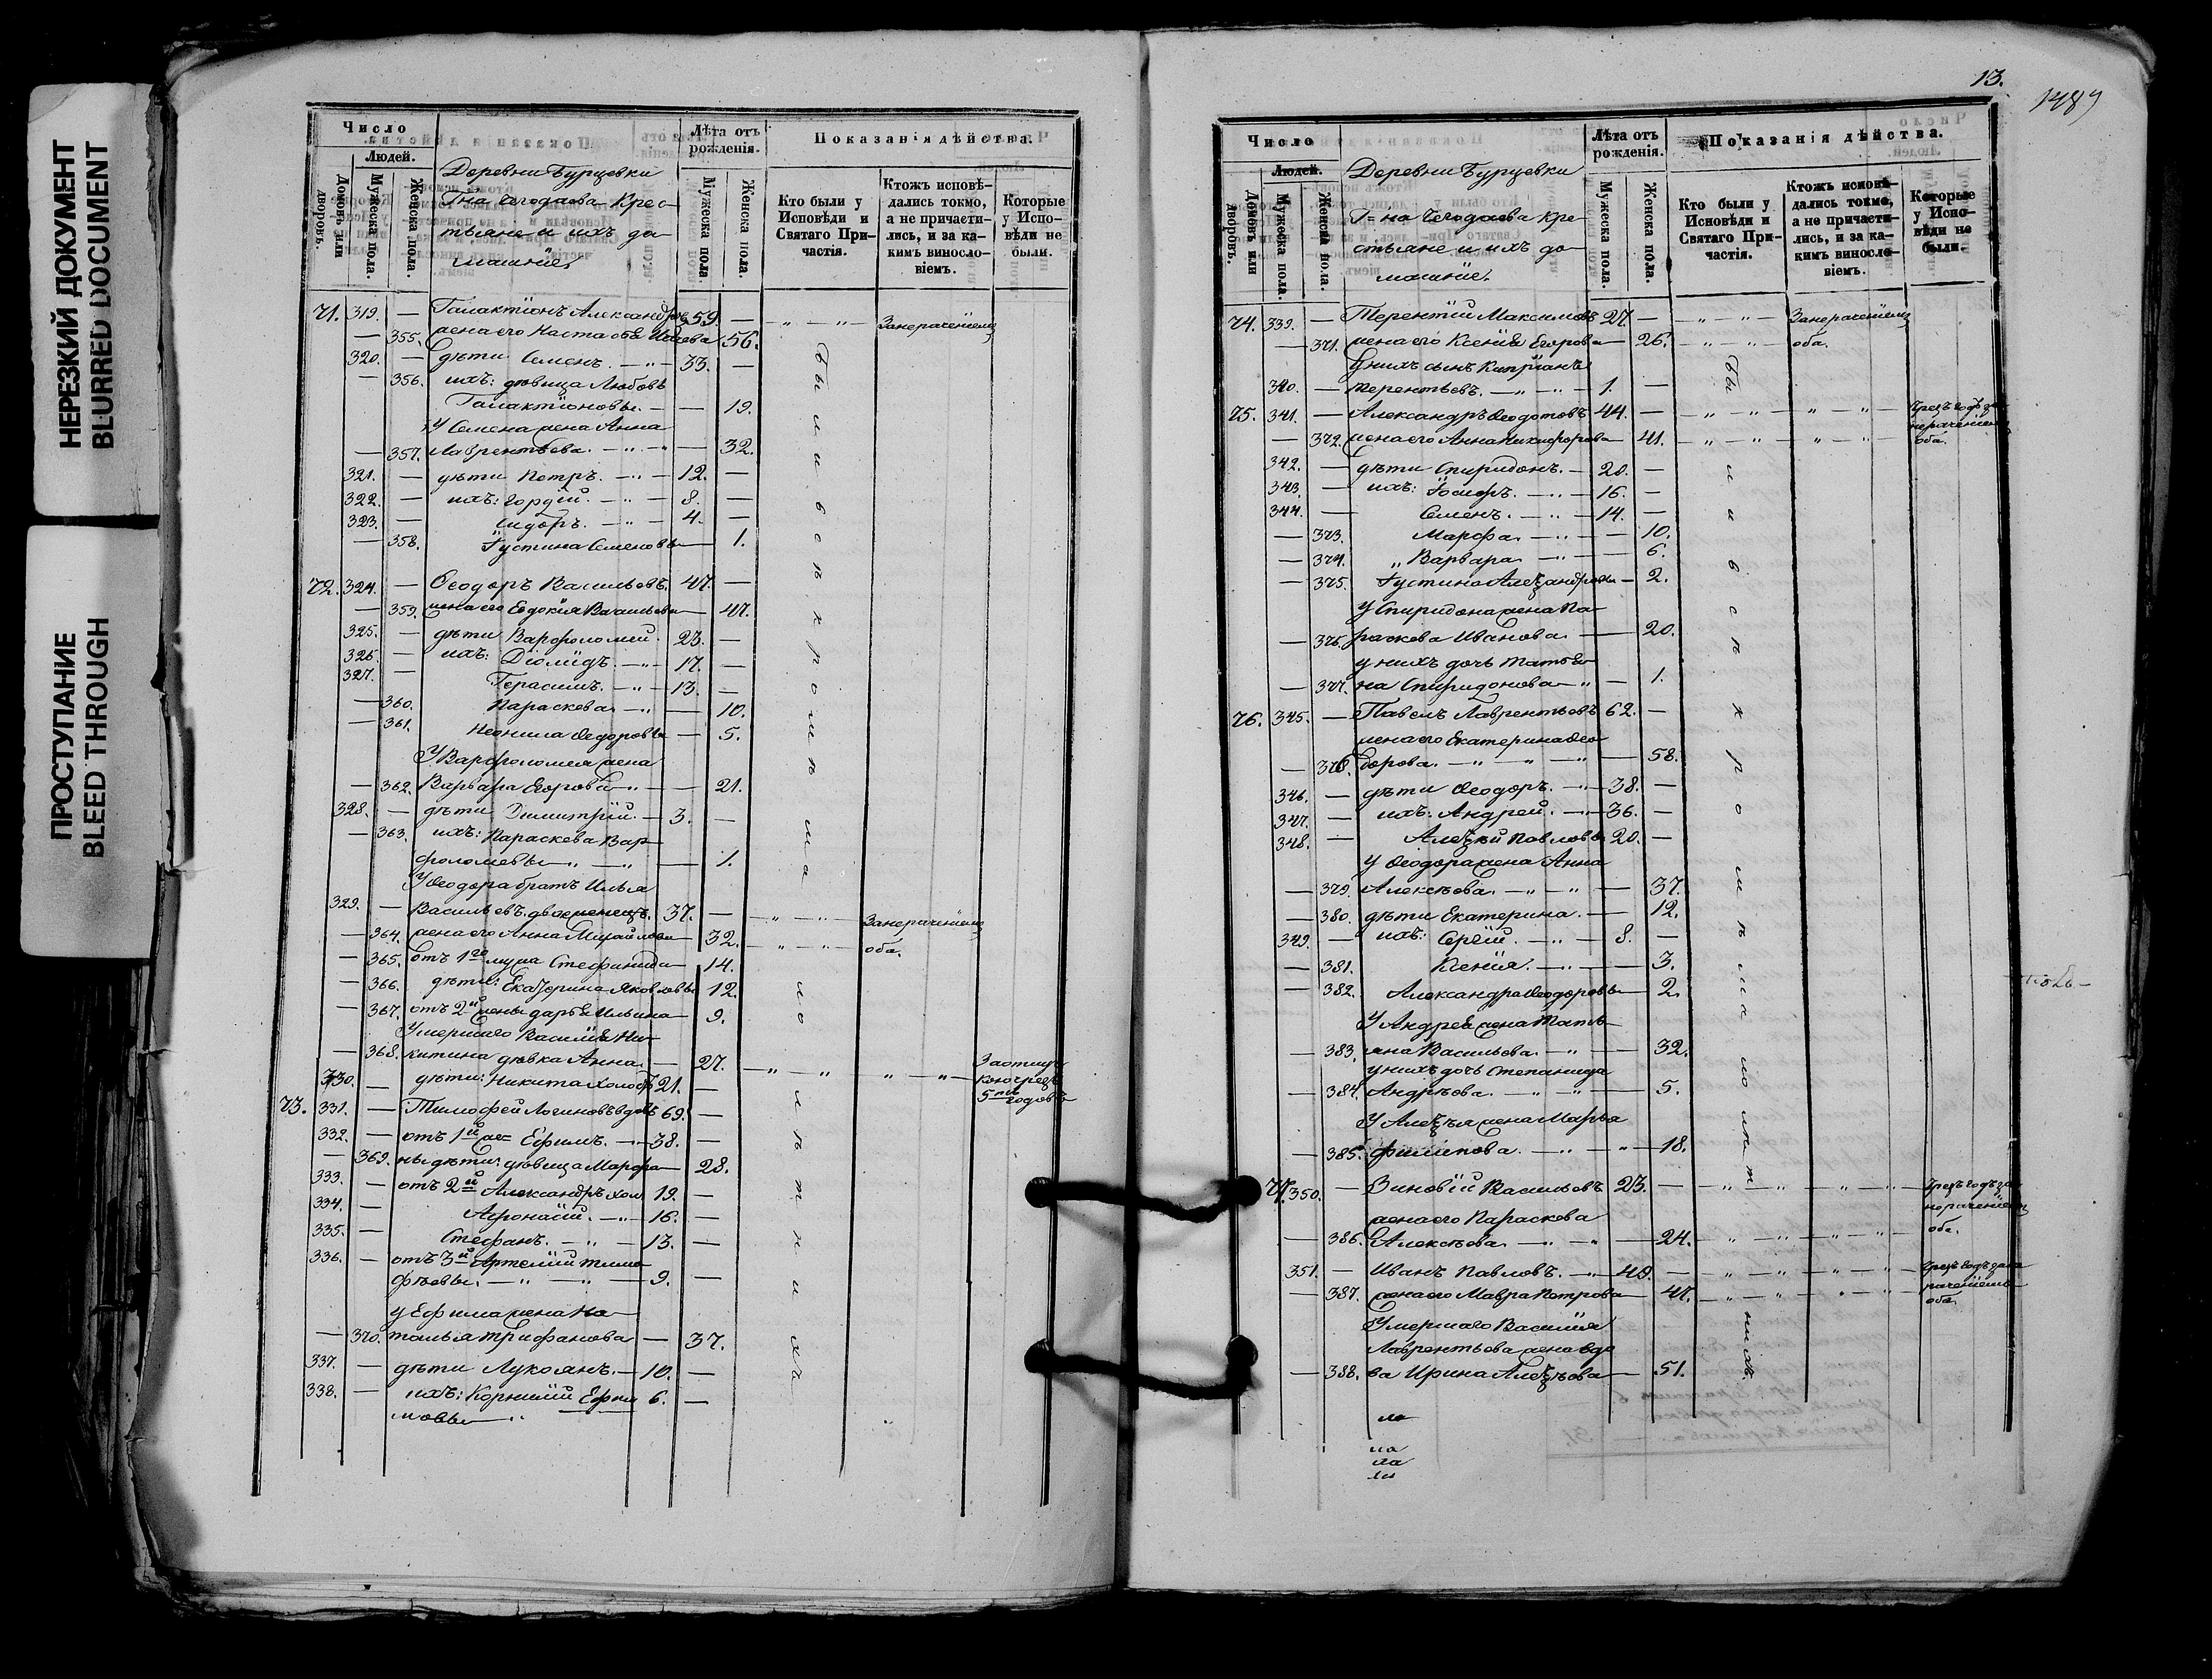 НЕРЕЗКИЙ ДОКУМЕНТ
BLURRED DOCUMENT
ПРОСТУПАНИЕ
BLEED THROUGH
Число
Людей.
Домовъ или дворовъ.
Мужеска пола.
Женска пола.
Деревни Бурцевки
Г-на Чегодаева Крес-
тьяне и ихъ до-
машніе,
Лѣта отъ рожденія.
Мужеска пола.
Женска пола.
Показанія дѣйства.
Кто были у Исповѣди и Святаго Причастія.
Ктожъ исповѣ-
дались токмо,
а не причасти-
лись, и за ка-
кимъ виносло-
віемъ.
Которые
у Испо-
вѣди не
были.
71. 319. — Галактіонъ Александровъ 59. — „ — „ — Занераченіемъ
— 355. жена его Настасья 56.
320. — дѣти Семенъ. — „ — 33. —
— 356. ихъ: дѣвица Любовь
Галактіоновы. — — 19.
У Семена жена Анна
— 357. Лаврентьева. — „ — „ — 32.
321. — дѣти Петръ. — „ — 12. —
322. — ихъ: Гордій. — „ — 8. —
323. — Сидоръ. — „ — 4. —
— 358. Густина Семеновы — 1.
72. 324. — Ѳеодоръ Васильевъ. 47. —
— 359. жена его Евдокія Васильева — 47.
325. — дѣти Варфоломей. 23. —
326. — ихъ: Діомидъ. — „ — 17. —
327. — Герасимъ. — „ — 13. —
— 360. Параскева. — „ — 10.
— 361. Неонила Ѳедоровы — 5.
У Варфоломея жена
— 362. Варвара Егорова — „ — — 21.
328. — дѣти Димитрій. — 3. —
— 363. ихъ: Параскева Вар-
фоломеевы — „ — „ — 1.
У Ѳеодора братъ Илья
329. — Васильевъ двоеженецъ. 37. — „ — „ — Занераченіемъ
— 364. жена его Анна Михайлова — 32. — „ — „ — оба.
— 365. отъ 1го мужа Стефанида — 14.
— 366. дѣти: Екатерина Яковлевы 12.
— 367. отъ 2й жены Дарья Ильина 9.
Умершаго Василія Ни-
— 368. китина дѣвка Анна. — 27. — „ — „ „ — „ — Заотлуч
330. — дѣти: Никита Холос 21. — кою чрезъ
5ть годовъ
73. 331. — Тимофей Логиновъ вдовъ 69. —
332. — отъ 1й же- Ефимъ. — „ — 38. —
— 369. ны дѣти: дѣвица Марфа — 28.
333. — отъ 2й Александръ хол 19. —
334. — Афонасій. — „ — 16. —
335. — Стефанъ. — „ — 13. —
336. — отъ 3й Артемій Тимо
фѣевы. — „ — „ — 9. —
у Ефима жена На
— 370. талья Трифанова — 37.
337. — дѣти Лукоянъ. — 10. —
338. — ихъ: Корнилій Ефи 6. —
мовы — „
Были во всѣ
13.
1489
Число
Людей.
Домовъ или дворовъ.
Мужеска пола.
Женска пола.
Деревни Бурцевки
Г-на Чегодаева кре-
стьяне и ихъ до-
машніе.
Лѣта отъ рожденія.
Мужеска пола.
Женска пола.
Показанія дѣйства.
Кто были у Исповѣди и Святаго Причастія.
Ктожъ исповѣ-
дались токмо,
а не причасти-
лись, и за ка-
кимъ виносло-
віемъ.
Которые
у Испо-
вѣди не
были.
74. 339. — Терентій Максимовъ 27. — „ — „ — Занераченіемъ
— 371. жена его Ксенія Егорова — 26. — „ — „ — оба.
У нихъ сынъ Кипріанъ
340. — Терентьевъ. — „ — „ — 1. —
75. 341. — Александръ Ѳеодотовъ 44. — „ — „ — „ — „ — Чрезъ годъ за
нераченіемъ
— 372. жена его Анна Никифорова — 41. — „ — „ — „ — „ оба.
342. — дѣти Спиридонъ. — 20. —
343. — ихъ: Іосифъ. — „ — 16. —
344. — Семенъ. — „ — 14. —
— 373. Марфа. — „ — — 10.
— 374. „ Варвара — „ — — 6.
— 375. Густина Александровы — 2.
У Спиридона жена Па-
— 376. раскева Иванова. — — 20.
у нихъ дочь Татья
— 377. на Спиридонова — „ — 1.
76. 345. — Павелъ Лаврентьевъ 62. —
жена его Екатерина Ѳео
— 378. дорова. — „ — „ — „ — 58.
346. — дѣти Ѳеодоръ. — „ — 38. —
347. — ихъ: Андрей. — „ — 36. —
348. — Алексѣй Павловы 20. —
У Ѳеодора жена Анна
— 379. Алексѣева. — „ — „ — 37.
— 380. дѣти Екатерина. — 12.
349. — ихъ: Сергій. — „ — 8. —
— 381. Ксенія. — „ — — 3.
— 382. Александра Ѳеодоровы — 2.
У Андрея жена Тать-
— 383. яна Васильева. — „ — 32.
у нихъ дочь Степанида
— 384. Андрѣева. — „ — „ — 5.
У Алексѣя жена Марья
— 385. Филипова. — „ — „ — 18.
77. 350. — Зиновій Васильевъ 23. — „ — „ — „ — „ — Чрезъ годъ за
жена его Параскева нераченіемъ
— 386. Алексѣева. — „ — „ — 24. — „ — „ — „ — „ — оба.
351. — Иванъ Павловъ. — „ — 40. — „ — „ — „ — „ — Чрезъ годъ зане
раченіемъ
— 387. жена его Мавра Петрова — 47. — „ — „ — „ — „ — оба
Умершаго Василія
Лаврентьева жена вдо
— 388. ва Ирина Алексѣева — 51.